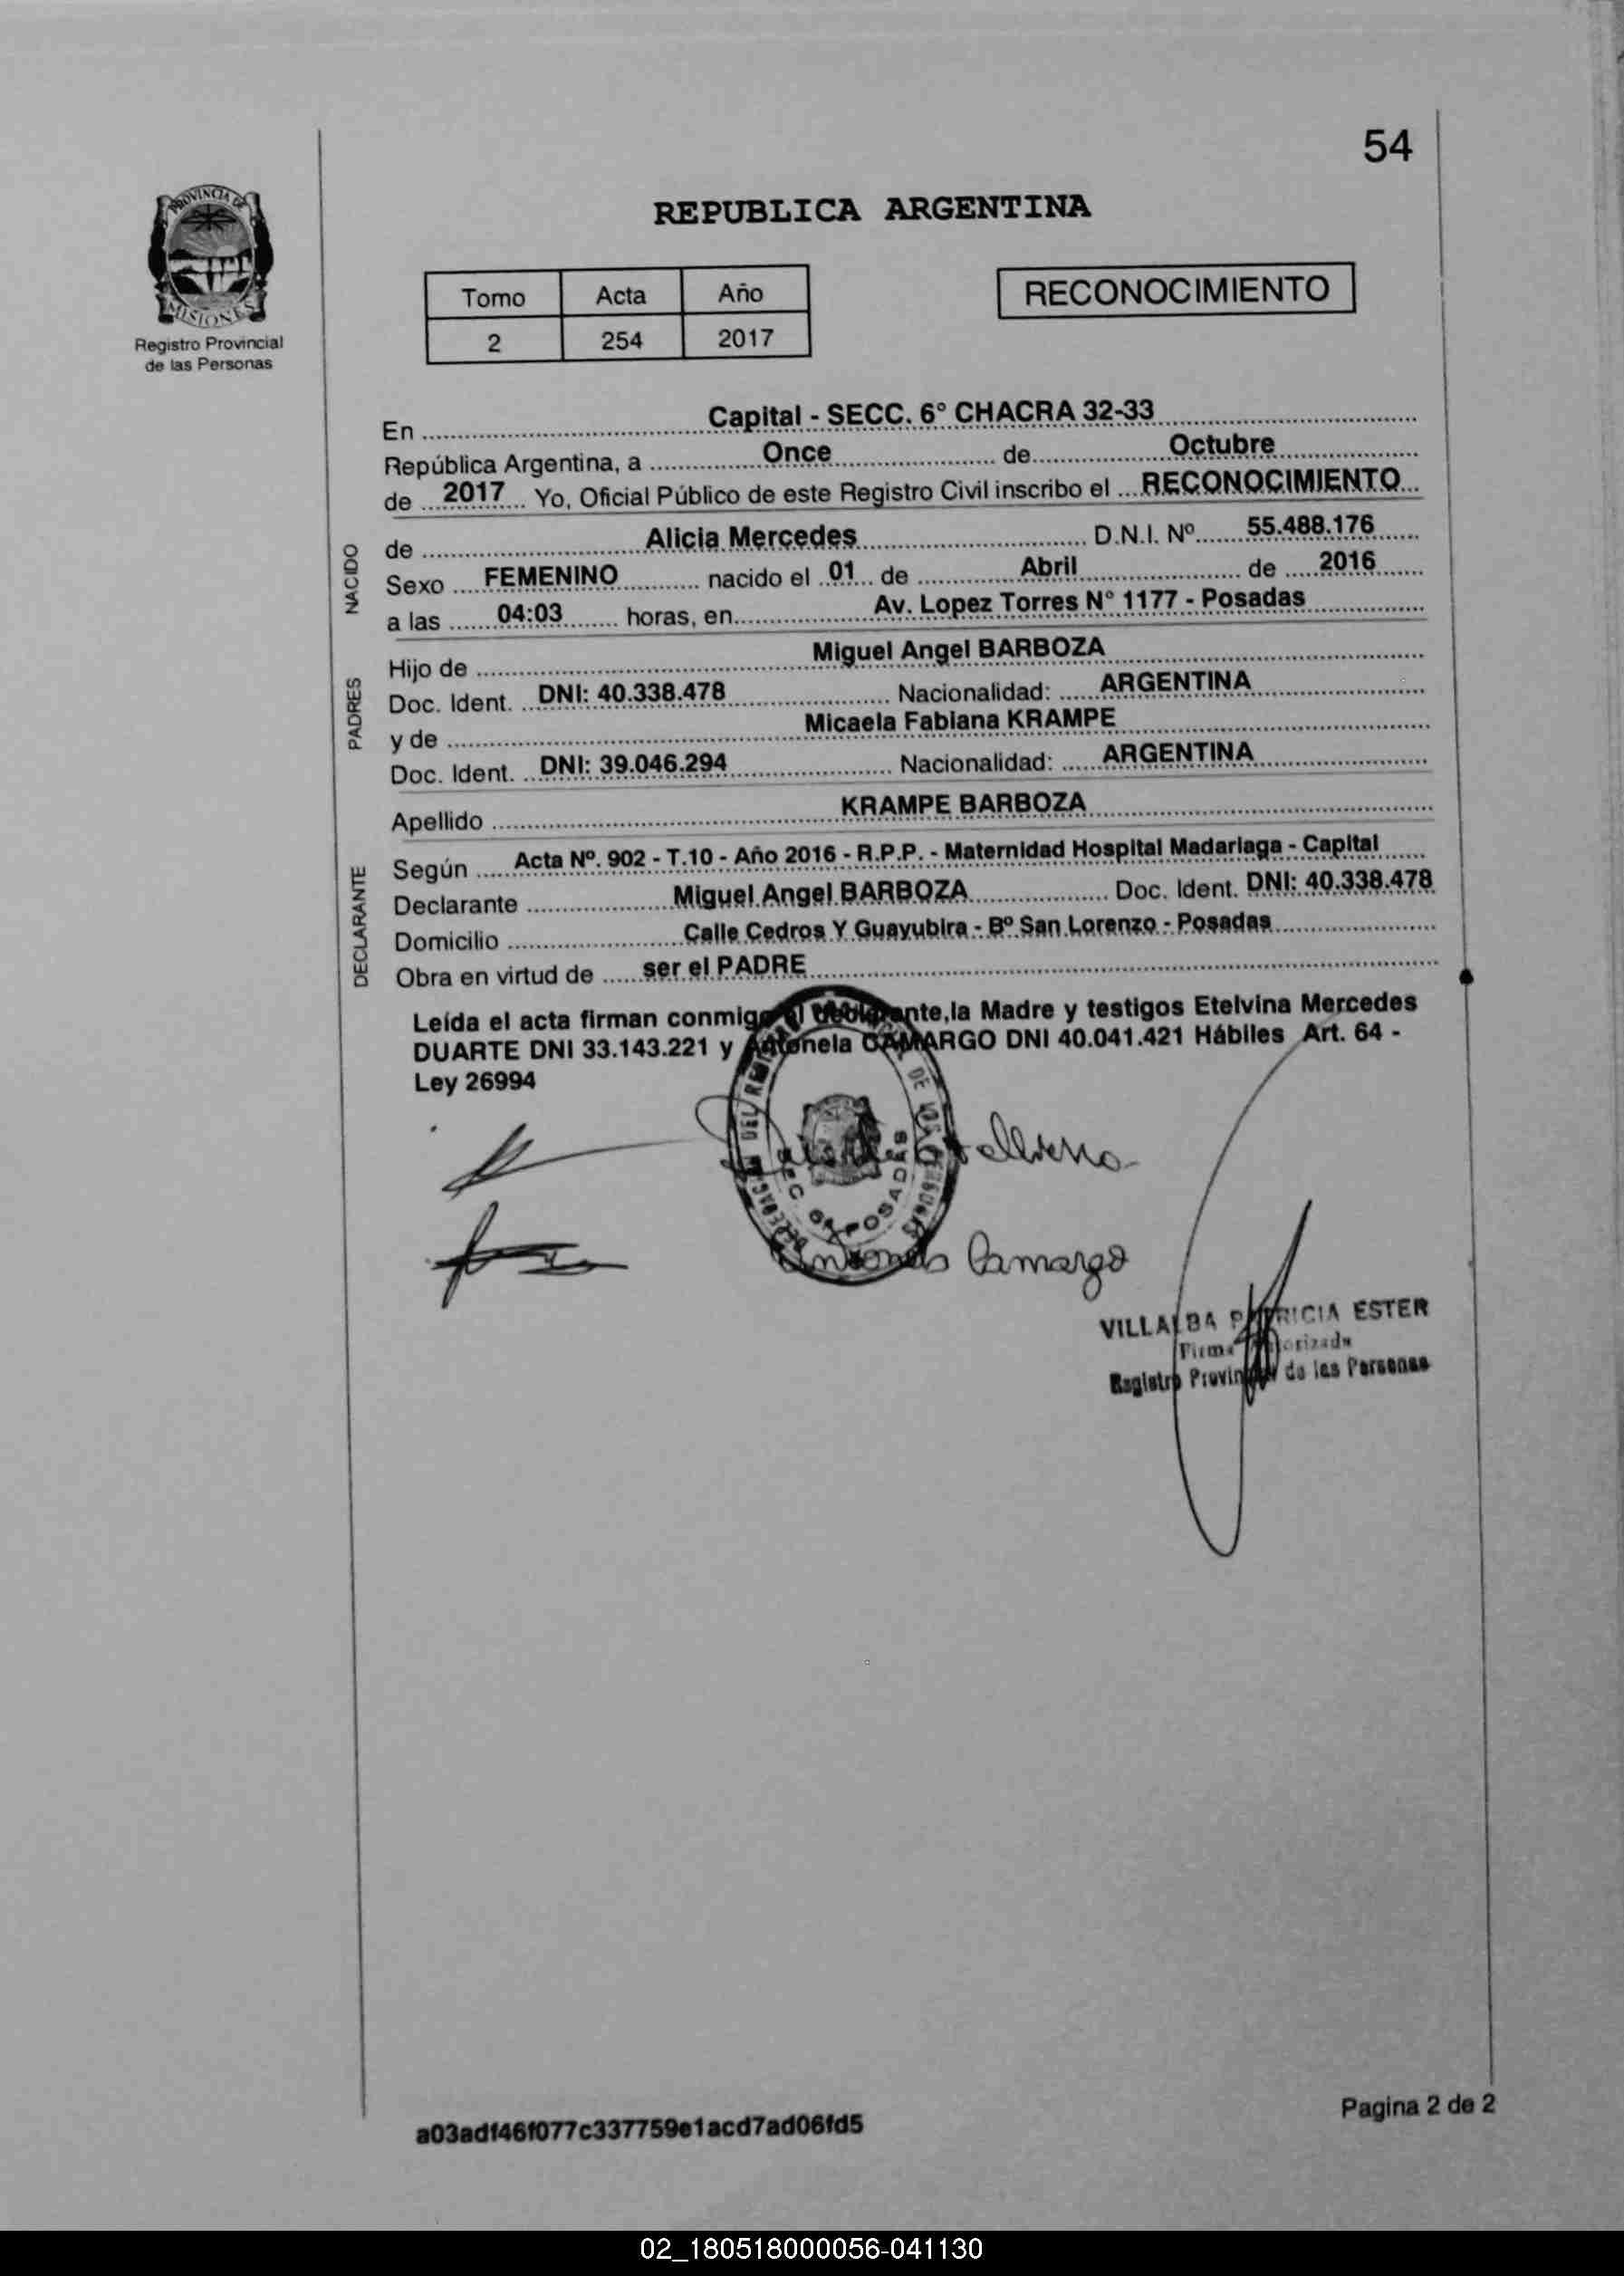 54
PROVINCIA DE
MISIONES
Registro Provincial
de las Personas
REPUBLICA ARGENTINA
Tomo Acta Año
2 254 2017
RECONOCIMIENTO
En Capital - SECC. 6° CHACRA 32-33
República Argentina, a Once de Octubre
de 2017 Yo, Oficial Público de este Registro Civil inscribo el RECONOCIMIENTO
NACIDO
de Alicia Mercedes D.N.I. Nº 55.488.176
Sexo FEMENINO nacido el 01 de Abril de 2016
a las 04:03 horas, en Av. Lopez Torres N° 1177 - Posadas
PADRES
Hijo de Miguel Angel BARBOZA
Doc. Ident. DNI: 40.338.478 Nacionalidad: ARGENTINA
y de Micaela Fabiana KRAMPE
Doc. Ident. DNI: 39.046.294 Nacionalidad: ARGENTINA
Apellido KRAMPE BARBOZA
DECLARANTE
Según Acta Nº. 902 - T.10 - Año 2016 - R.P.P. - Maternidad Hospital Madariaga - Capital
Declarante Miguel Angel BARBOZA Doc. Ident. DNI: 40.338.478
Domicilio Calle Cedros Y Guayubira - Bº San Lorenzo - Posadas
Obra en virtud de ser el PADRE
Leída el acta firman conmigo el declarante,la Madre y testigos Etelvina Mercedes
DUARTE DNI 33.143.221 y Antonela CAMARGO DNI 40.041.421 Hábiles Art. 64 -
Ley 26994
POSADAS
Antonela Camargo
VILLALBA PATRICIA ESTER
Firma Autorizada
Registro Provincial de las Personas
a03adf46f077c337759e1acd7ad06fd5
Pagina 2 de 2
02_180518000056-041130